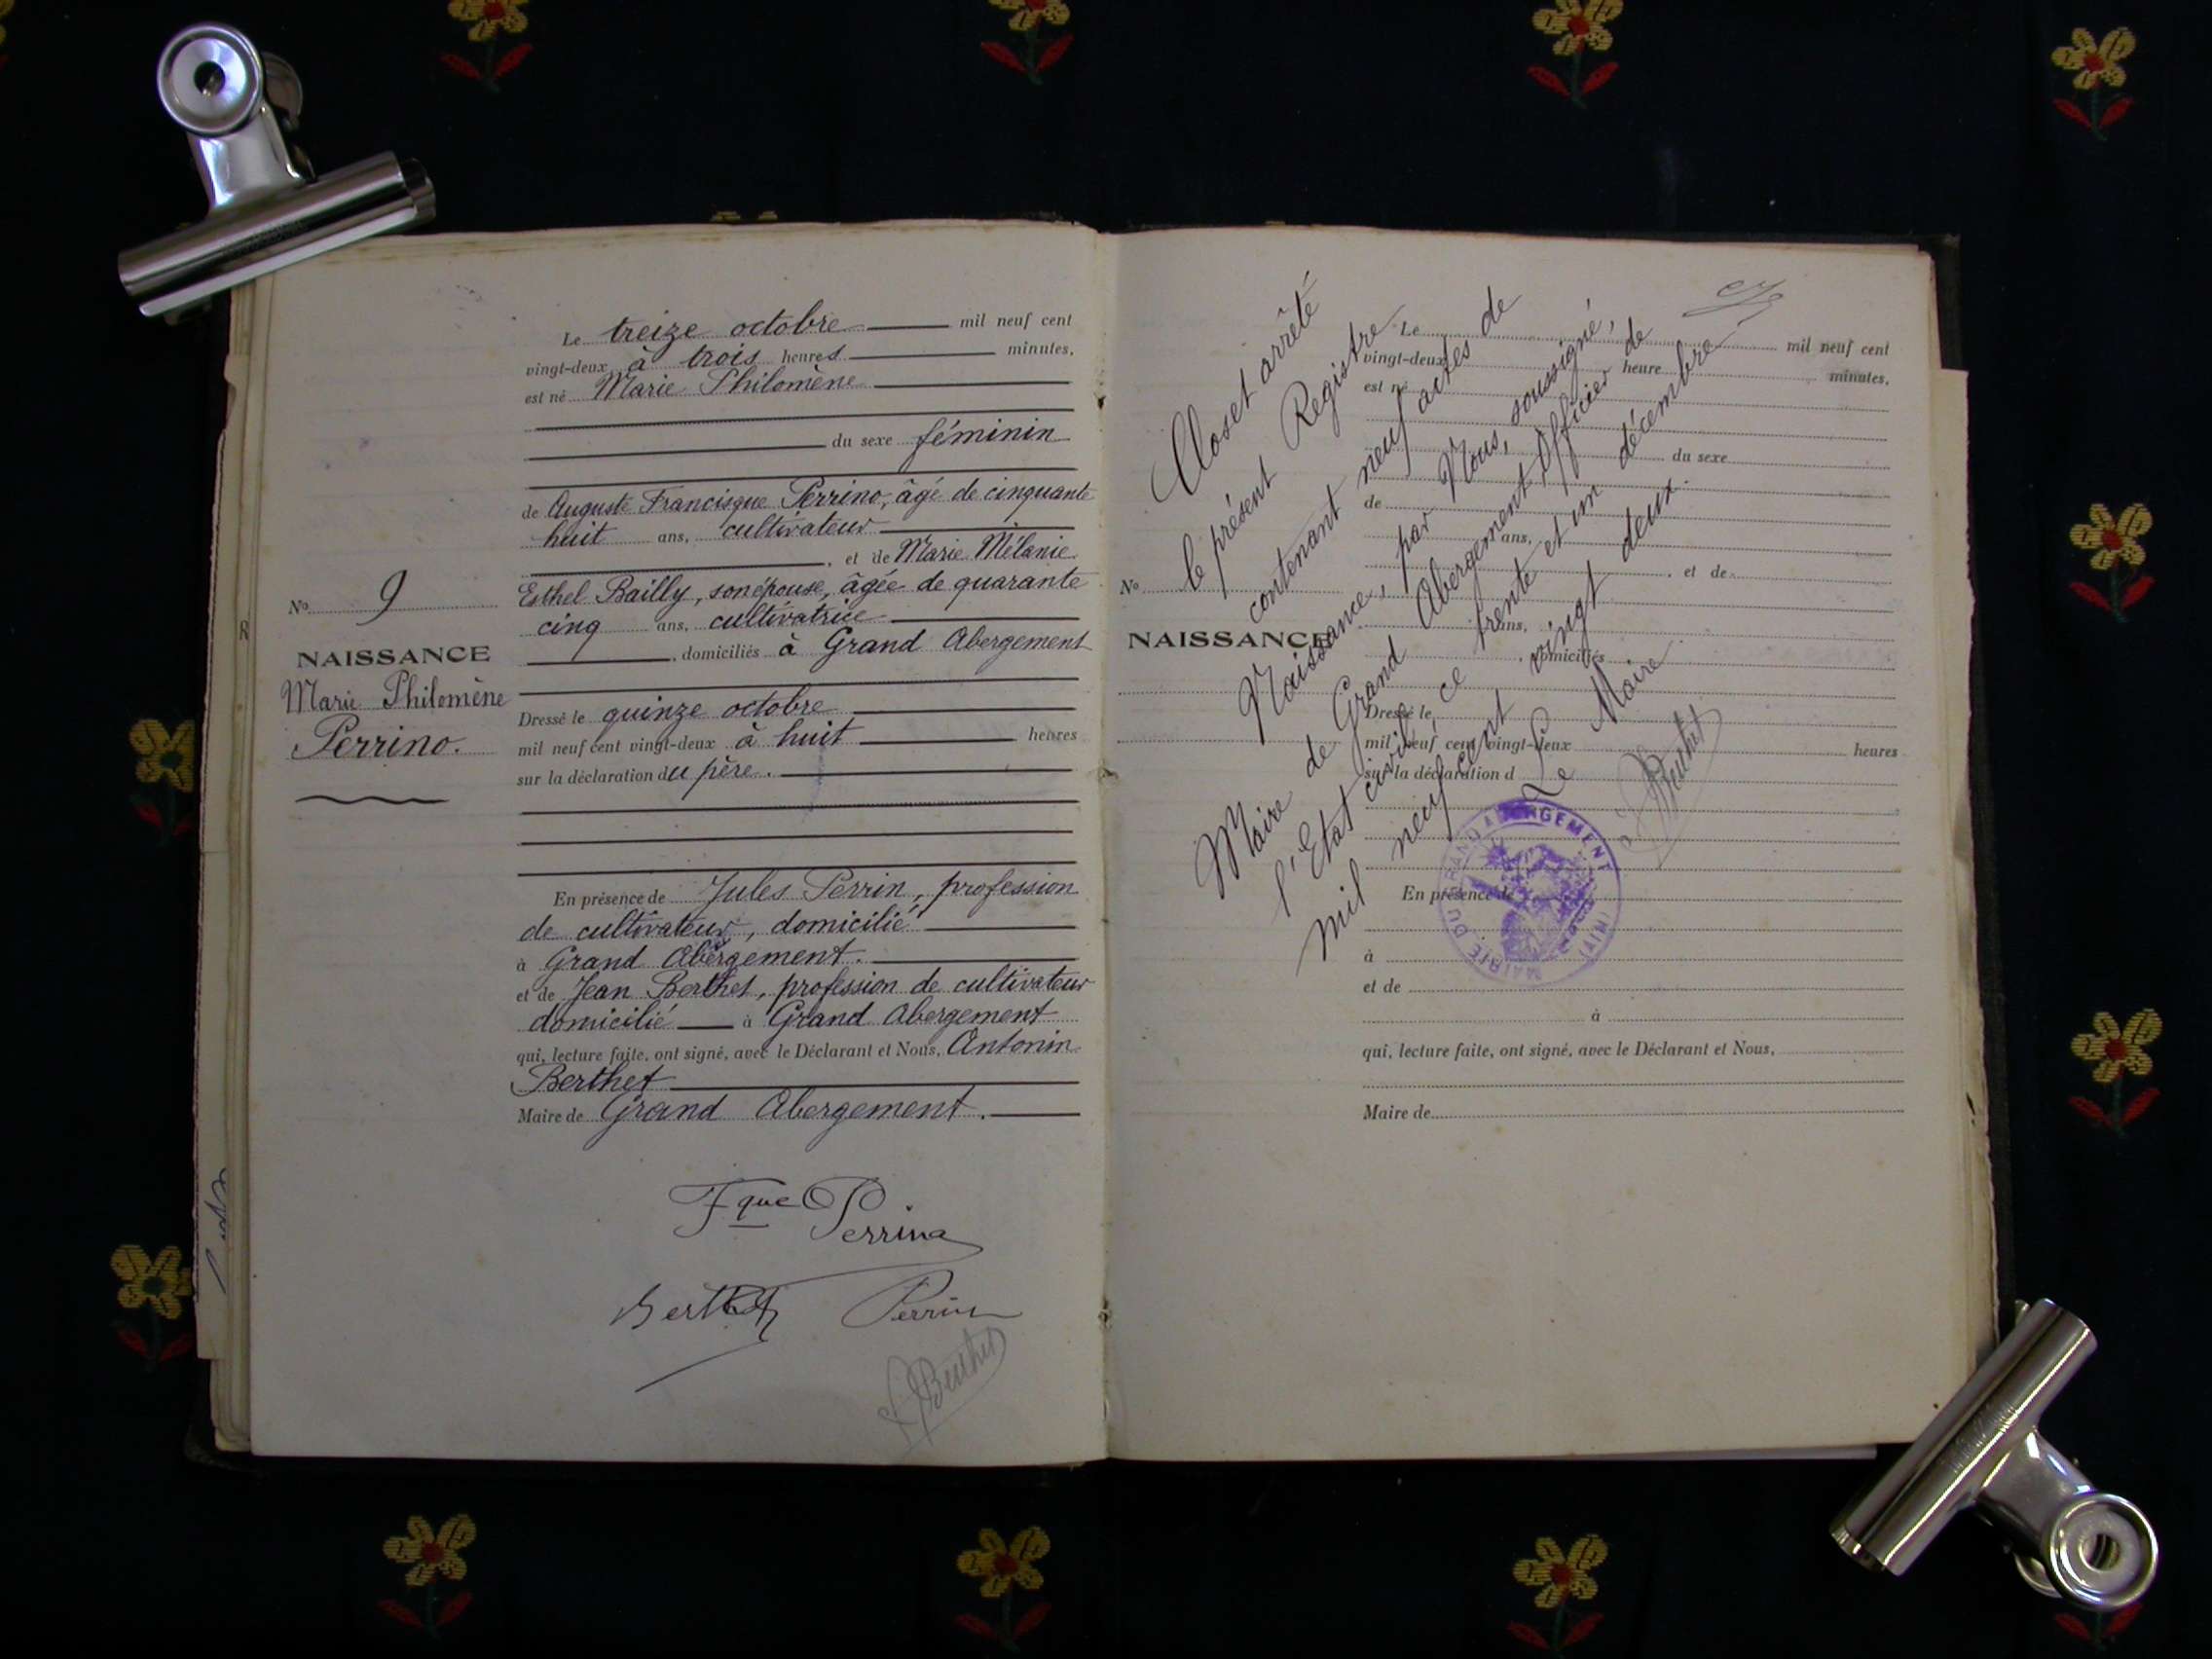 Le treize octobre mil neuf cent
vingt-deux à trois heures minutes,
est né Marie Philomène
du sexe féminin
de Auguste Francisque Perrino, âgé de cinquante
huit ans, cultivateur
, et de Marie Mélanie
Esthel Bailly, son épouse, âgée de quarante
cinq ans, cultivatrice
, domiciliés à Grand Abergement
Dressé le quinze octobre
mil neuf cent vingt-deux à huit heures
sur la déclaration du père.
En présence de Jules Perrin, profession
de cultivateur, domicilié
à Grand Abergement.
et de Jean Berthet, profession de cultivateur
domicilié à Grand Abergement
qui, lecture faite, ont signé, avec le Déclarant et Nous, Antonin
Berthet
Maire de Grand Abergement.
No 9
NAISSANCE
Marie Philomène
Perrino.
Fque Perrino
Berthet Perrin
Berthet
Clos et arrêté
le présent Registre
contenant neuf actes de
Naissance, par Nous, soussigné,
Maire de Grand Abergement, Officier de
l'Etat civil, ce trente et un décembre
mil neuf cent vingt deux.
Le Maire
Berthet
MAIRIE DU GRAND ABERGEMENT (AIN)
No
NAISSANCE
Le mil neuf cent
vingt-deux heure minutes,
est né
du sexe
de
ans,
, et de
ans,
, domiciliés
Dressé le
mil neuf cent vingt-deux heures
sur la déclaration d
En présence de
à
et de
à
qui, lecture faite, ont signé, avec le Déclarant et Nous,
Maire de